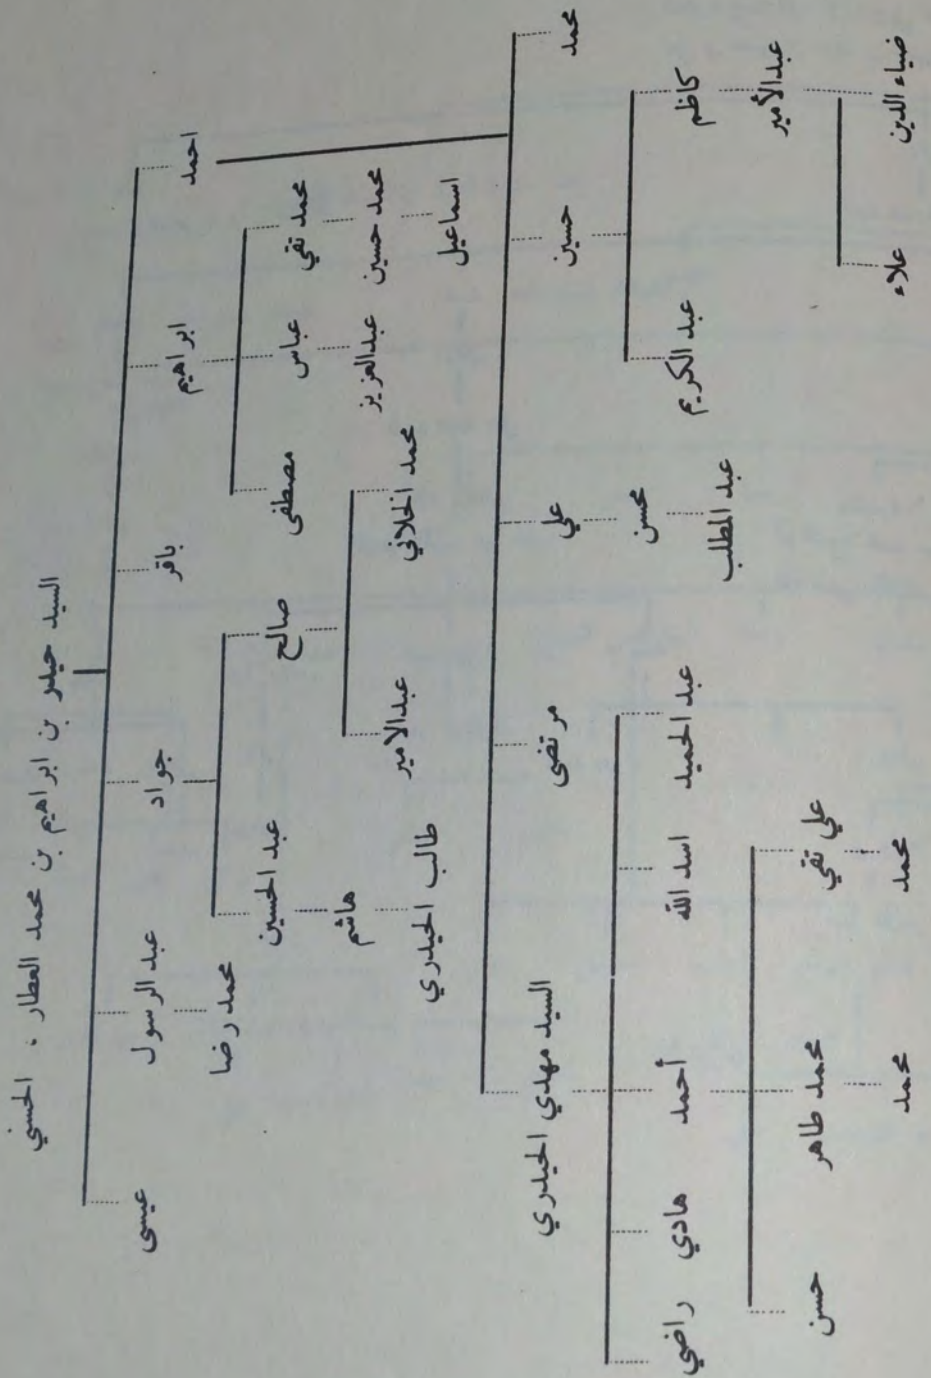 السيد حيدر بن ابراهيم بن محمد العطار ، الحسني
احمد ابراهيم باقر جواد عبد الرسول عيسى
محمد تقي عباس مصطفى صالح عبد الحسين محمد رضا
محمد حسين عبدالعزيز محمد الخلاني عبدالامير هاشم
اسماعيل طالب الحيدري
محمد حسين علي مرتضى السيد مهدي الحيدري
كاظم عبد الكريم محسن عبد الحميد اسد الله أحمد هادي راضي
عبدالأمير عبد المطلب علي تقي محمد طاهر حسن
ضياء الدين علاء محمد محمد